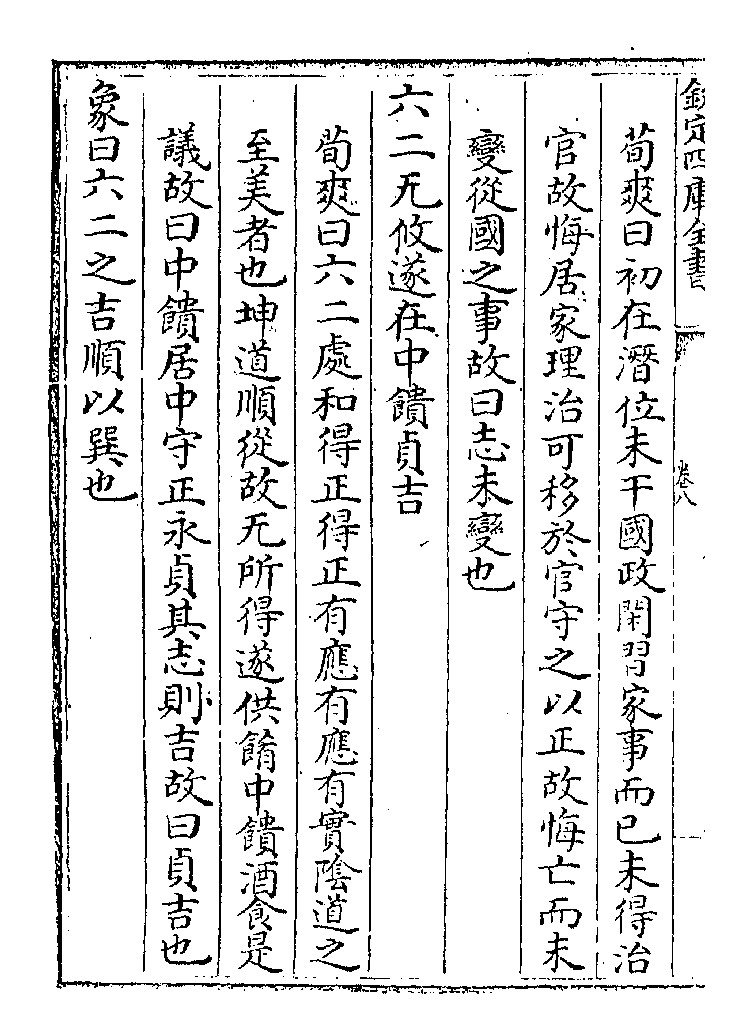 欽定四庫全書
卷八
荀爽曰初在潛位未干國政閑習家事而已未得治
官故悔居家理治可移於官守之以正故悔亡而未
變從國之事故曰志未變也
六二无攸遂在中饋貞吉
荀爽曰六二處和得正得正有應有應有實陰道之
至美者也坤道順從故无所得遂供餚中饋酒食是
議故曰中饋居中守正永貞其志則吉故曰貞吉也
象曰六二之吉順以巽也